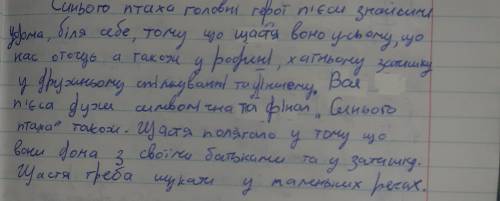 Синього птаха головні герої п'єси знайшли
удома, біля себе, тому що щастя воно усьому, що
нас оточує а також у родині, хатньому затишку
у дружньому спілкуванні та іншому. Вся
п'єса дуже символічна та фінал „Синього
птаха" також. Щастя полягало у тому що
вони дома з своїми батьками та у затишку.
Щастя треба шукати у маленьких речах.